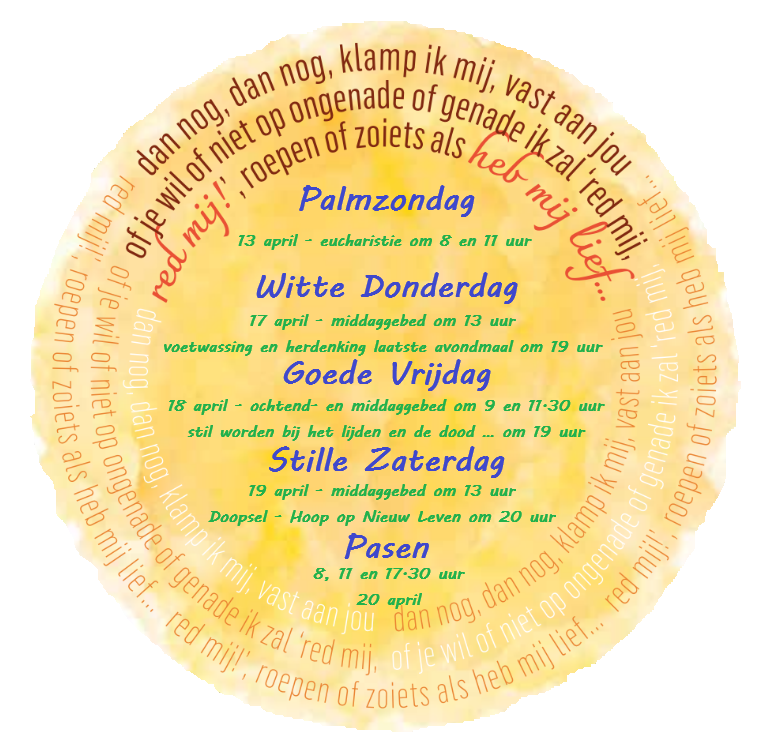 dan nog, dan nog, klamp ik mij, vast aan jou
of je wil of niet op ongenade of genade ik zal 'red mij,
red mij!', roepen of zoiets als heb mij lief...
Palmzondag
13 april - eucharistie om 8 en 11 uur
Witte Donderdag
17 april - middaggebed om 13 uur
voetwassing en herdenking laatste avondmaal om 19 uur
Goede Vrijdag
18 april - ochtend- en middaggebed om 9 en 11.30 uur
stil worden bij het lijden en de dood ... om 19 uur
Stille Zaterdag
19 april - middaggebed om 13 uur
Doopsel - Hoop op Nieuw Leven om 20 uur
Pasen
8, 11 en 17.30 uur
20 april
dan nog, dan nog, klamp ik mij, vast aan jou
of je wil of niet op ongenade of genade ik zal 'red mij,
red mij!', roepen of zoiets als heb mij lief...
dan nog, dan nog, klamp ik mij, vast aan jou
of je wil of niet op ongenade of genade ik zal 'red mij,
red mij!', roepen of zoiets als heb mij lief...
red mij!', roepen of zoiets als heb mij lief...